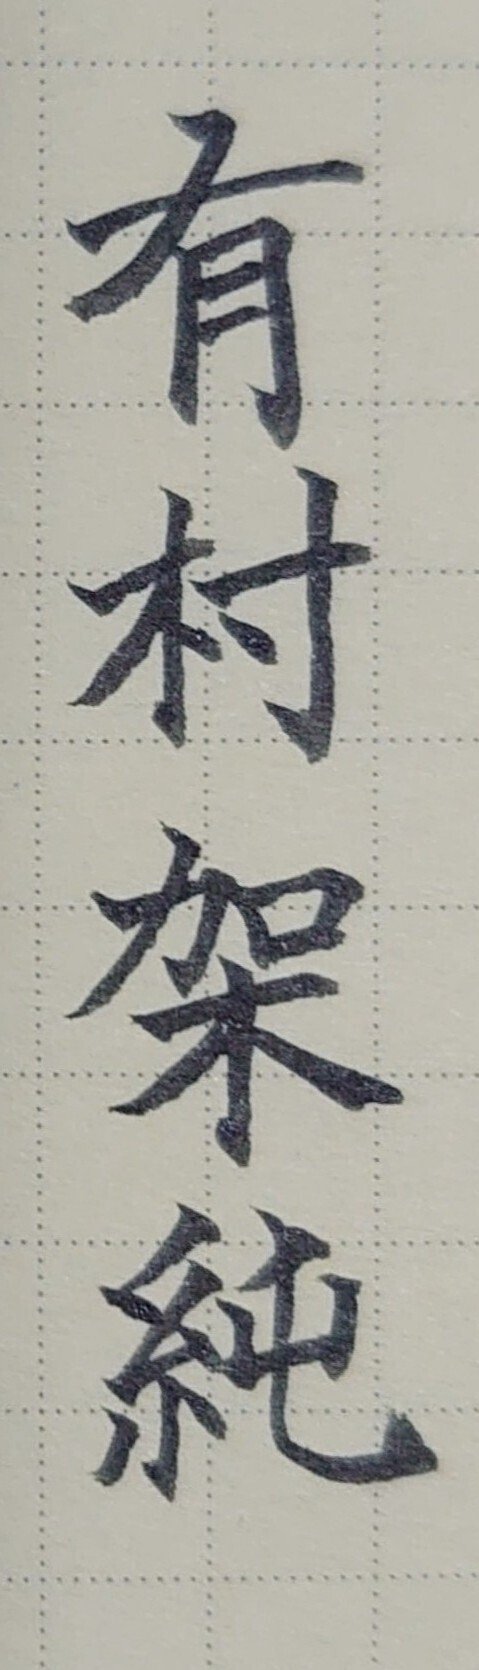 有村架純